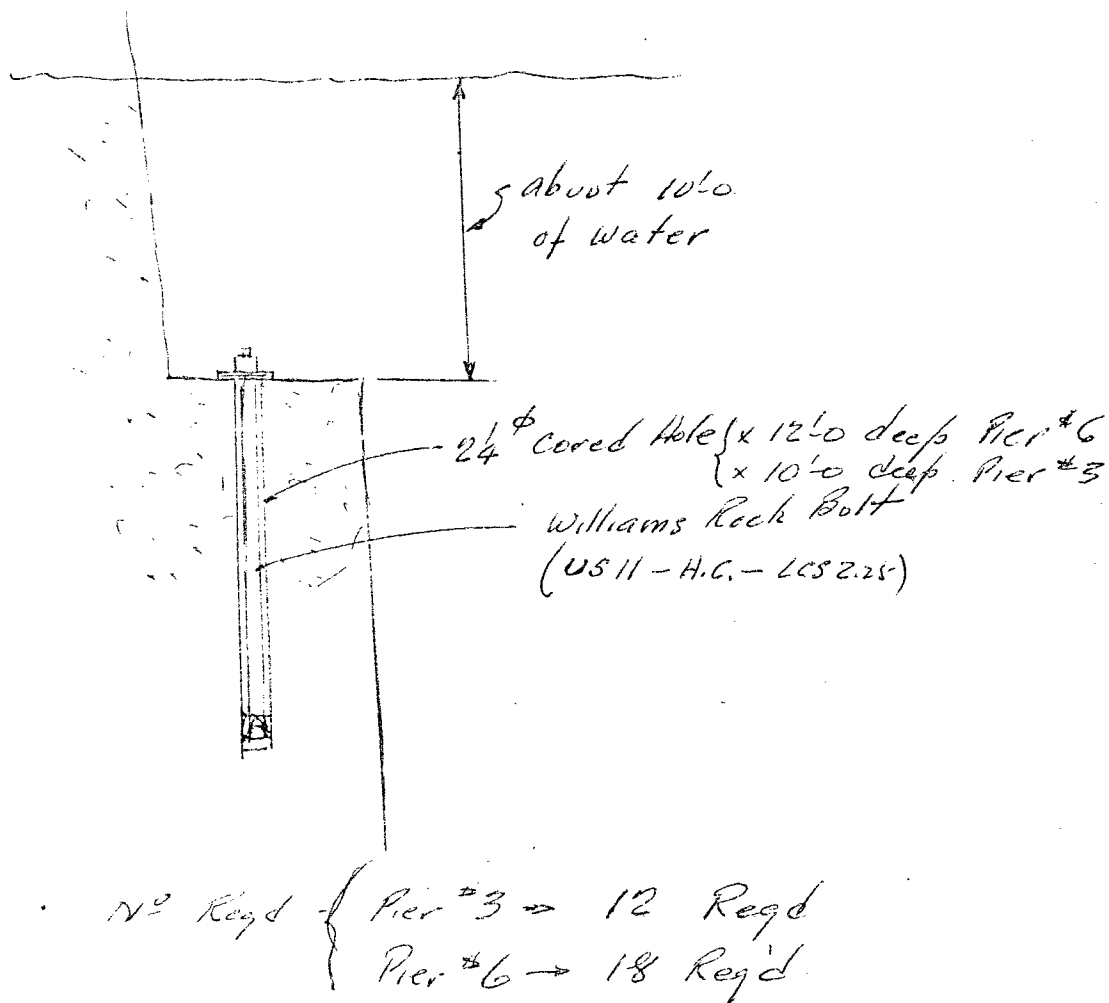 abuot 10'-0
of water
2¼ φ Cored Hole { x 12'-0 deep Pier #6
x 10'-0 deep Pier #3
Williams Rock Bolt
(US 11 - H.C. - LCS 2.25)
Nº Reqd { Pier #3 → 12 Reqd
Pier #6 → 18 Req'd